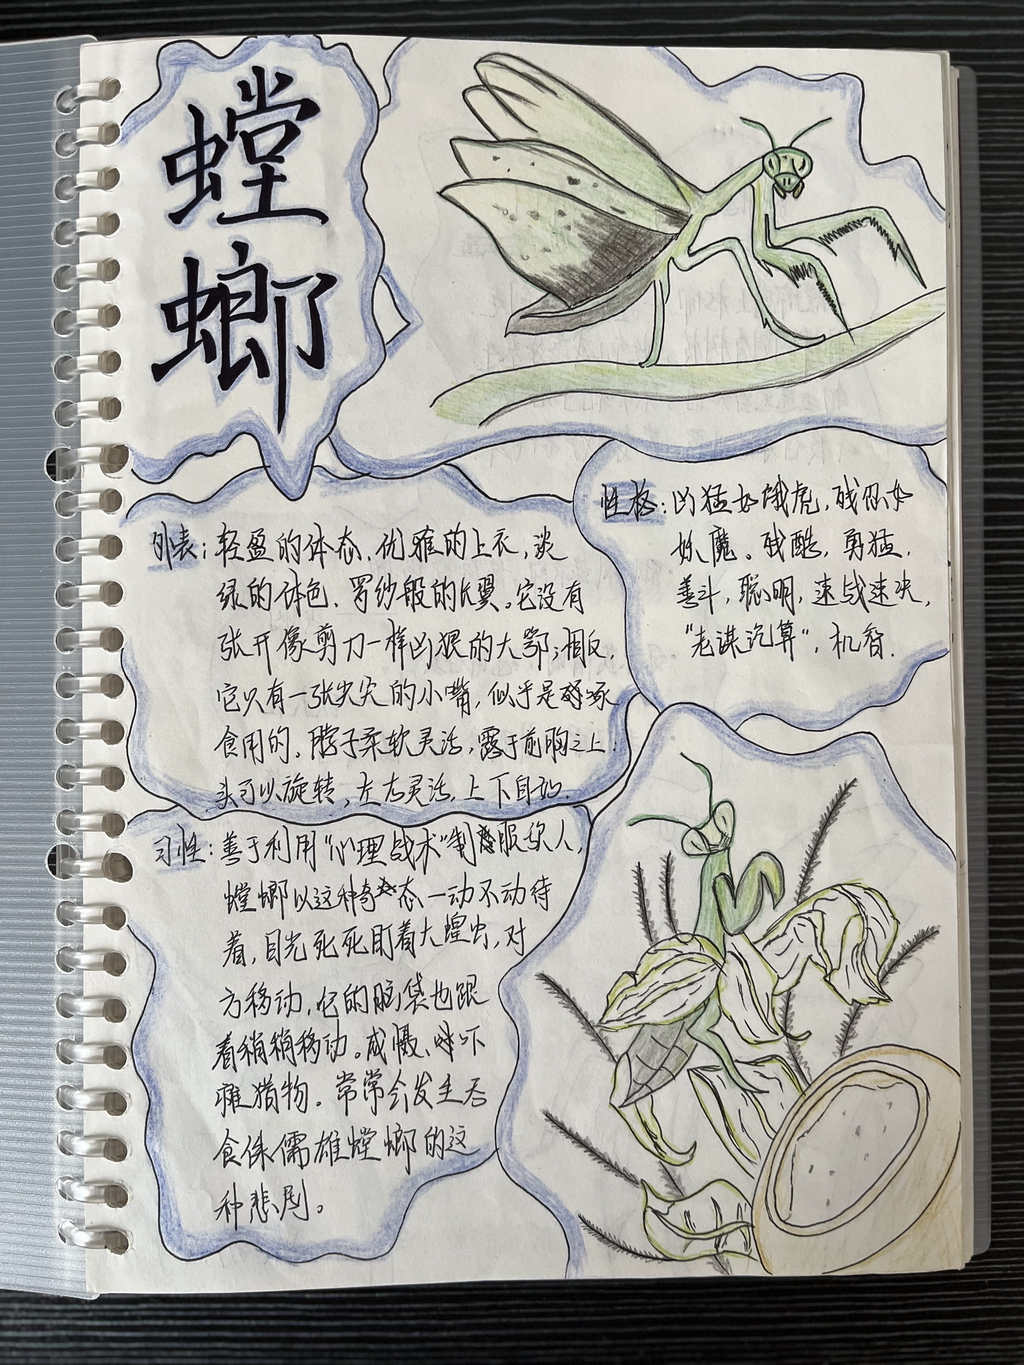 螳
螂
外表：轻盈的体态、优雅的上衣，淡
绿的体色、罗纱般的长翼。它没有
张开像剪刀一样凶狠的大鄂；相反，
它只有一张尖尖的小嘴，似乎是啄
食用的。脖子柔软灵活，露于前胸之上
头可以旋转，左右灵活，上下自如.
性格：凶猛如饿虎，残忍如
妖魔。残酷，勇猛，
善斗，聪明，速战速决，
"老谋沉算"，机香.
习性：善于利用"心理战术"制服敌人，
螳螂以这种态一动不动待
着，目光死死盯着大蝗虫，对
方移动，它的脑袋也跟
着稍稍移动。威慑、吓
唬猎物。常常会发生吞
食侏儒雄螳螂的这
种悲剧。